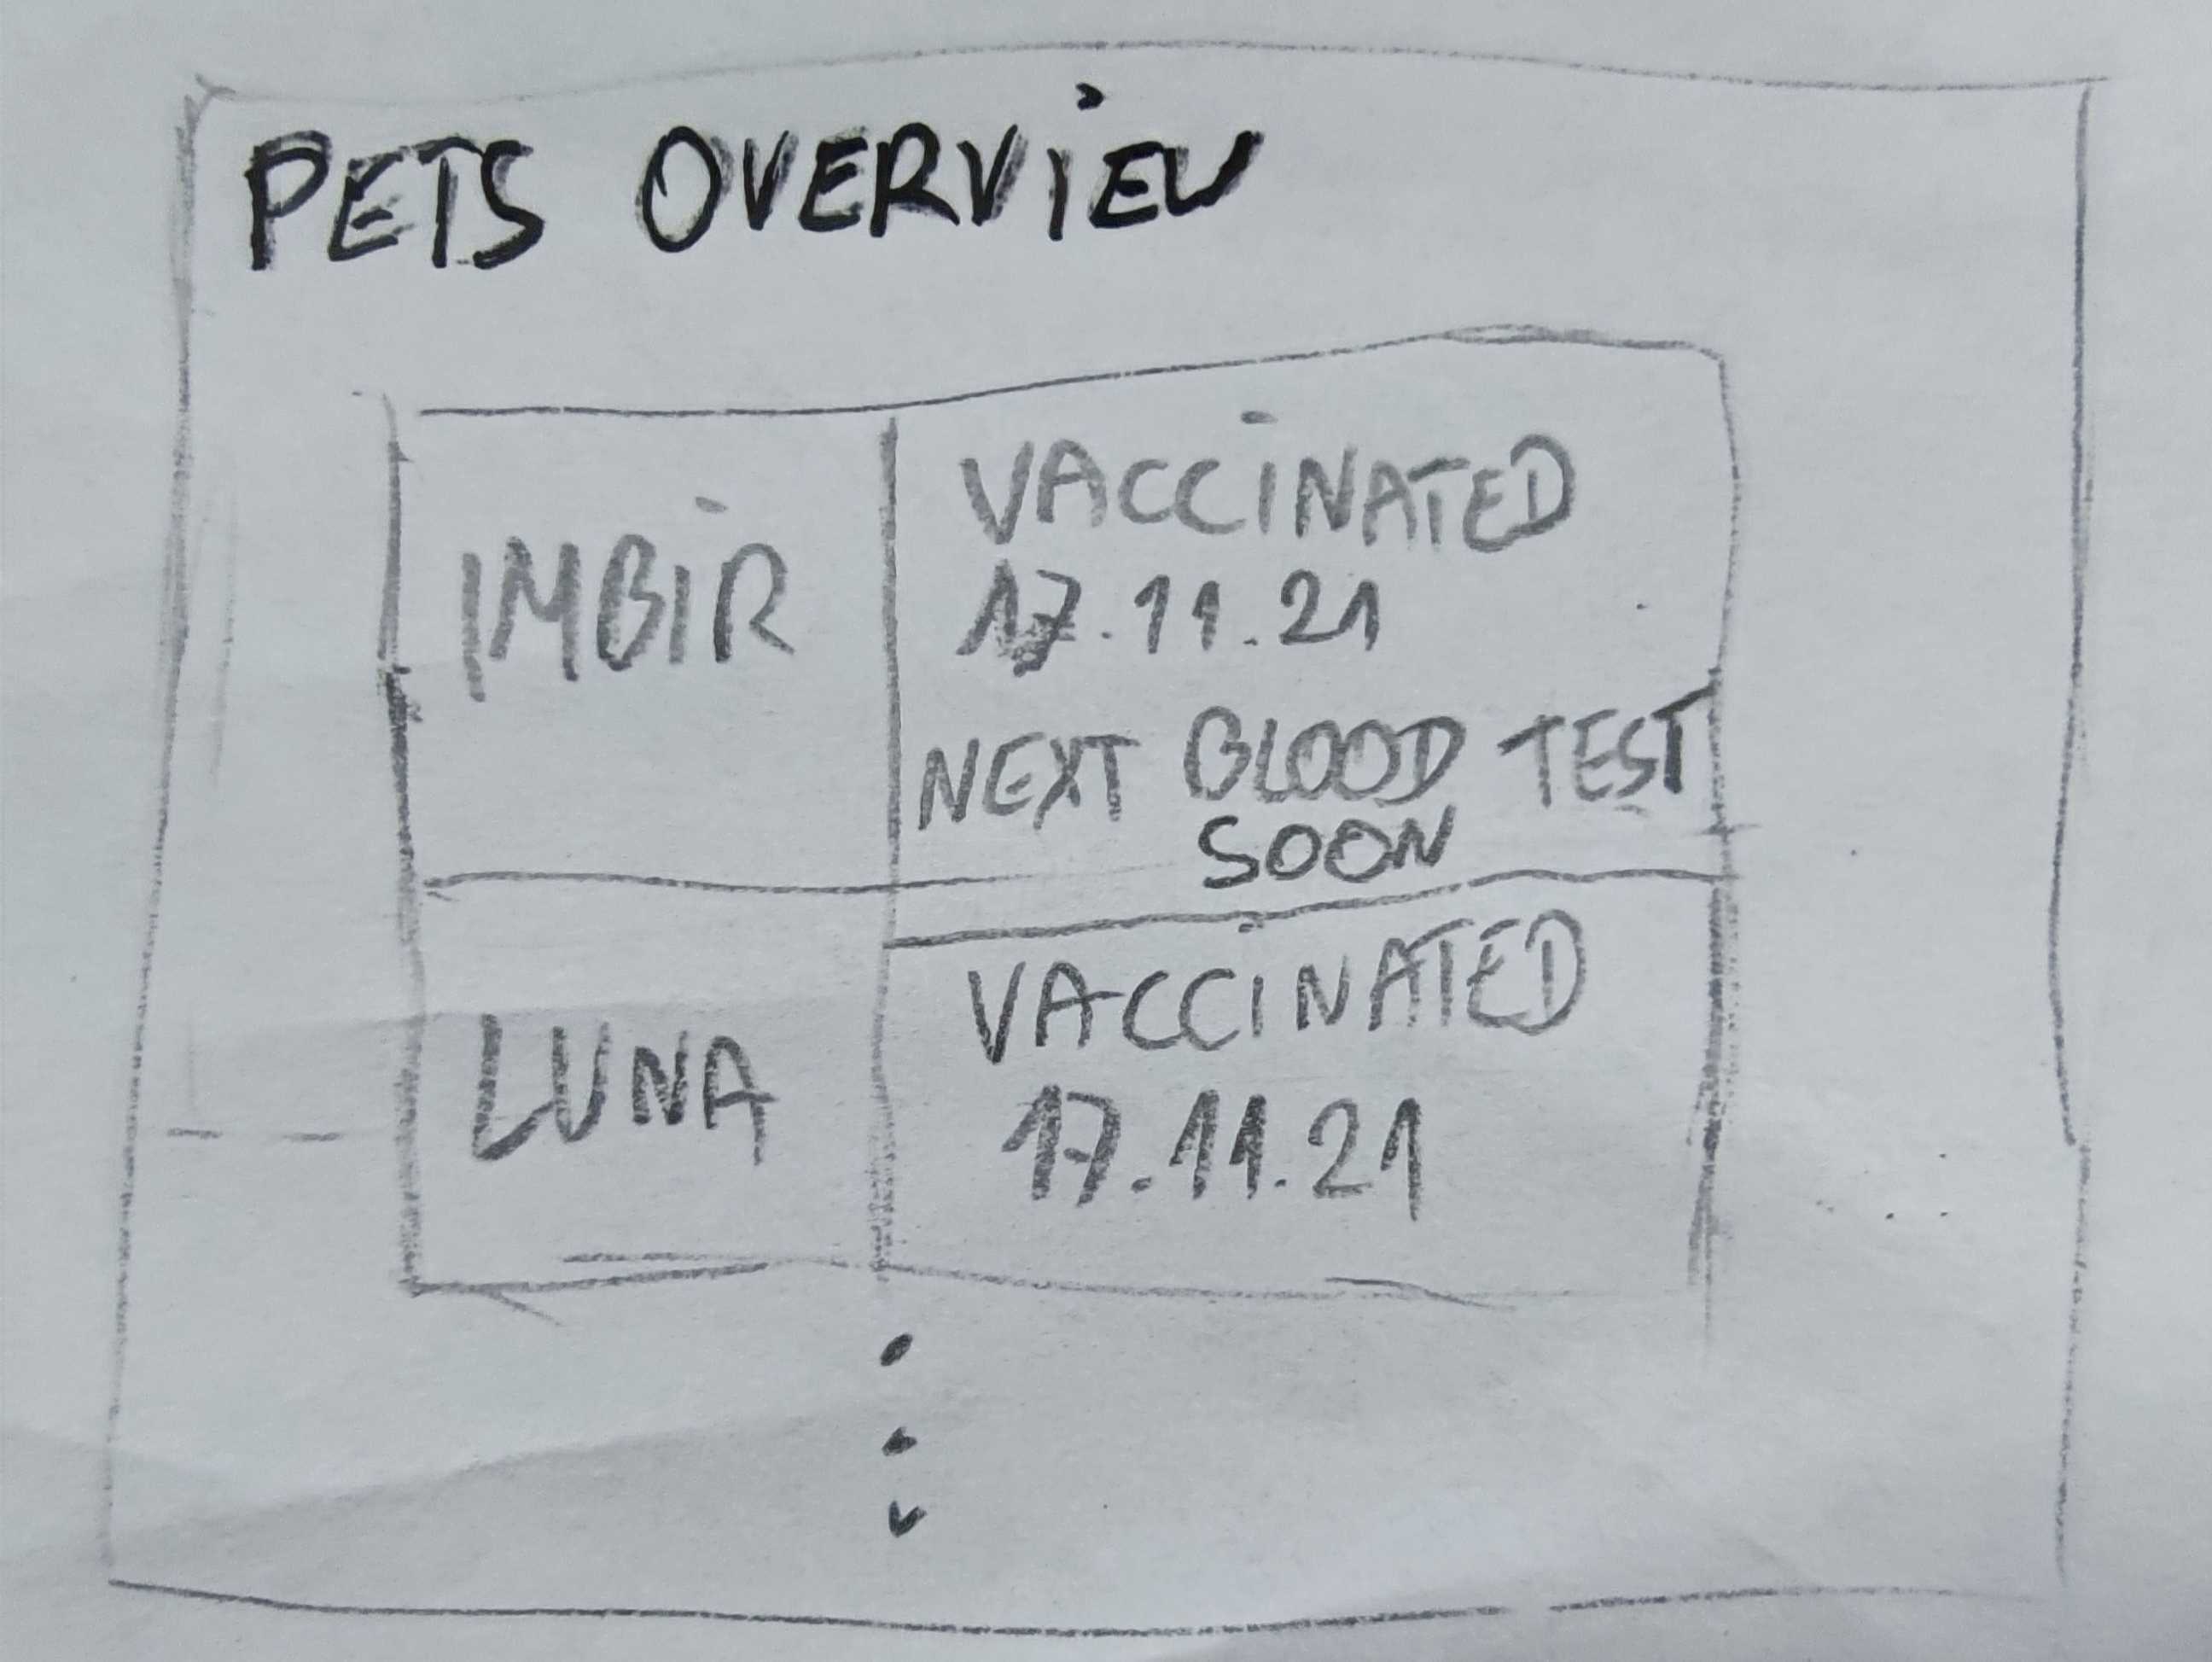 PETS OVERVIEW
IMBIR
VACCINATED
17.11.21
NEXT BLOOD TEST
SOON
LUNA
VACCINATED
17.11.21